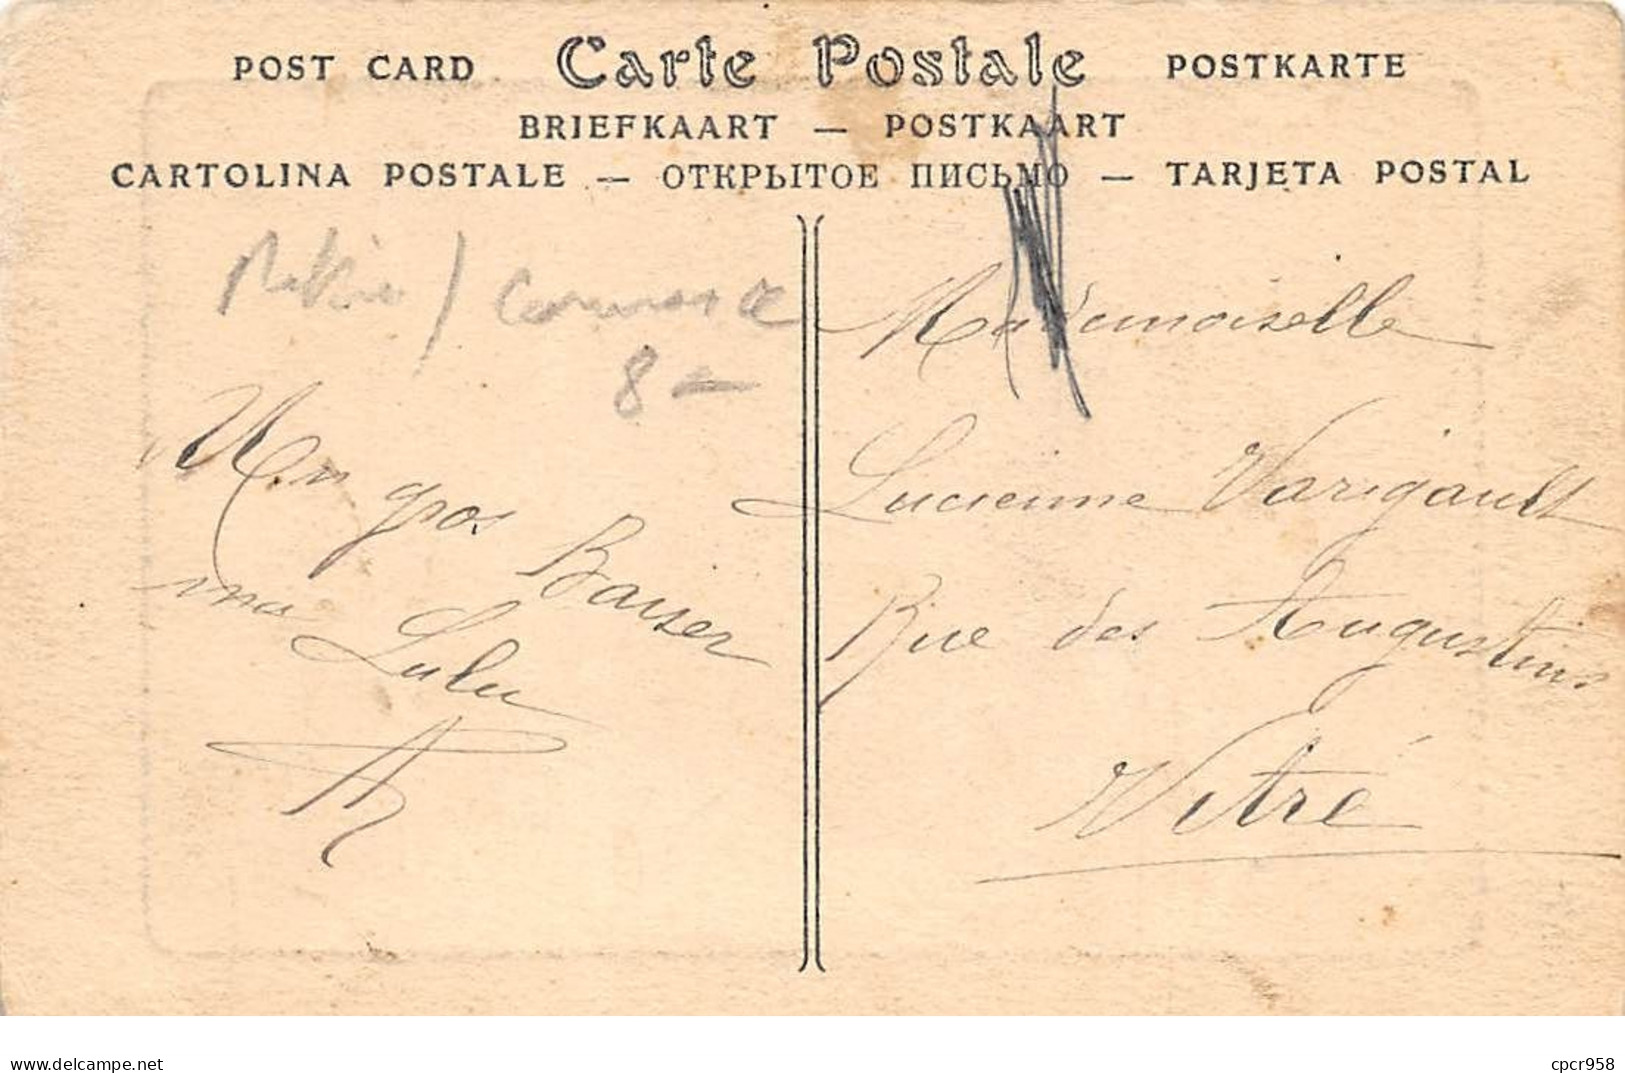 POST CARD Carte Postale POSTKARTE
BRIEFKAART — POSTKAART
CARTOLINA POSTALE — ОТКРЫТОЕ ПИСЬМО — TARJETA POSTAL
8 —
Un gros Baiser
ma Lulu
Mademoiselle
Lucienne Varigault
Rue des Augustins
Vitré
www.delcampe.net
cpcr958